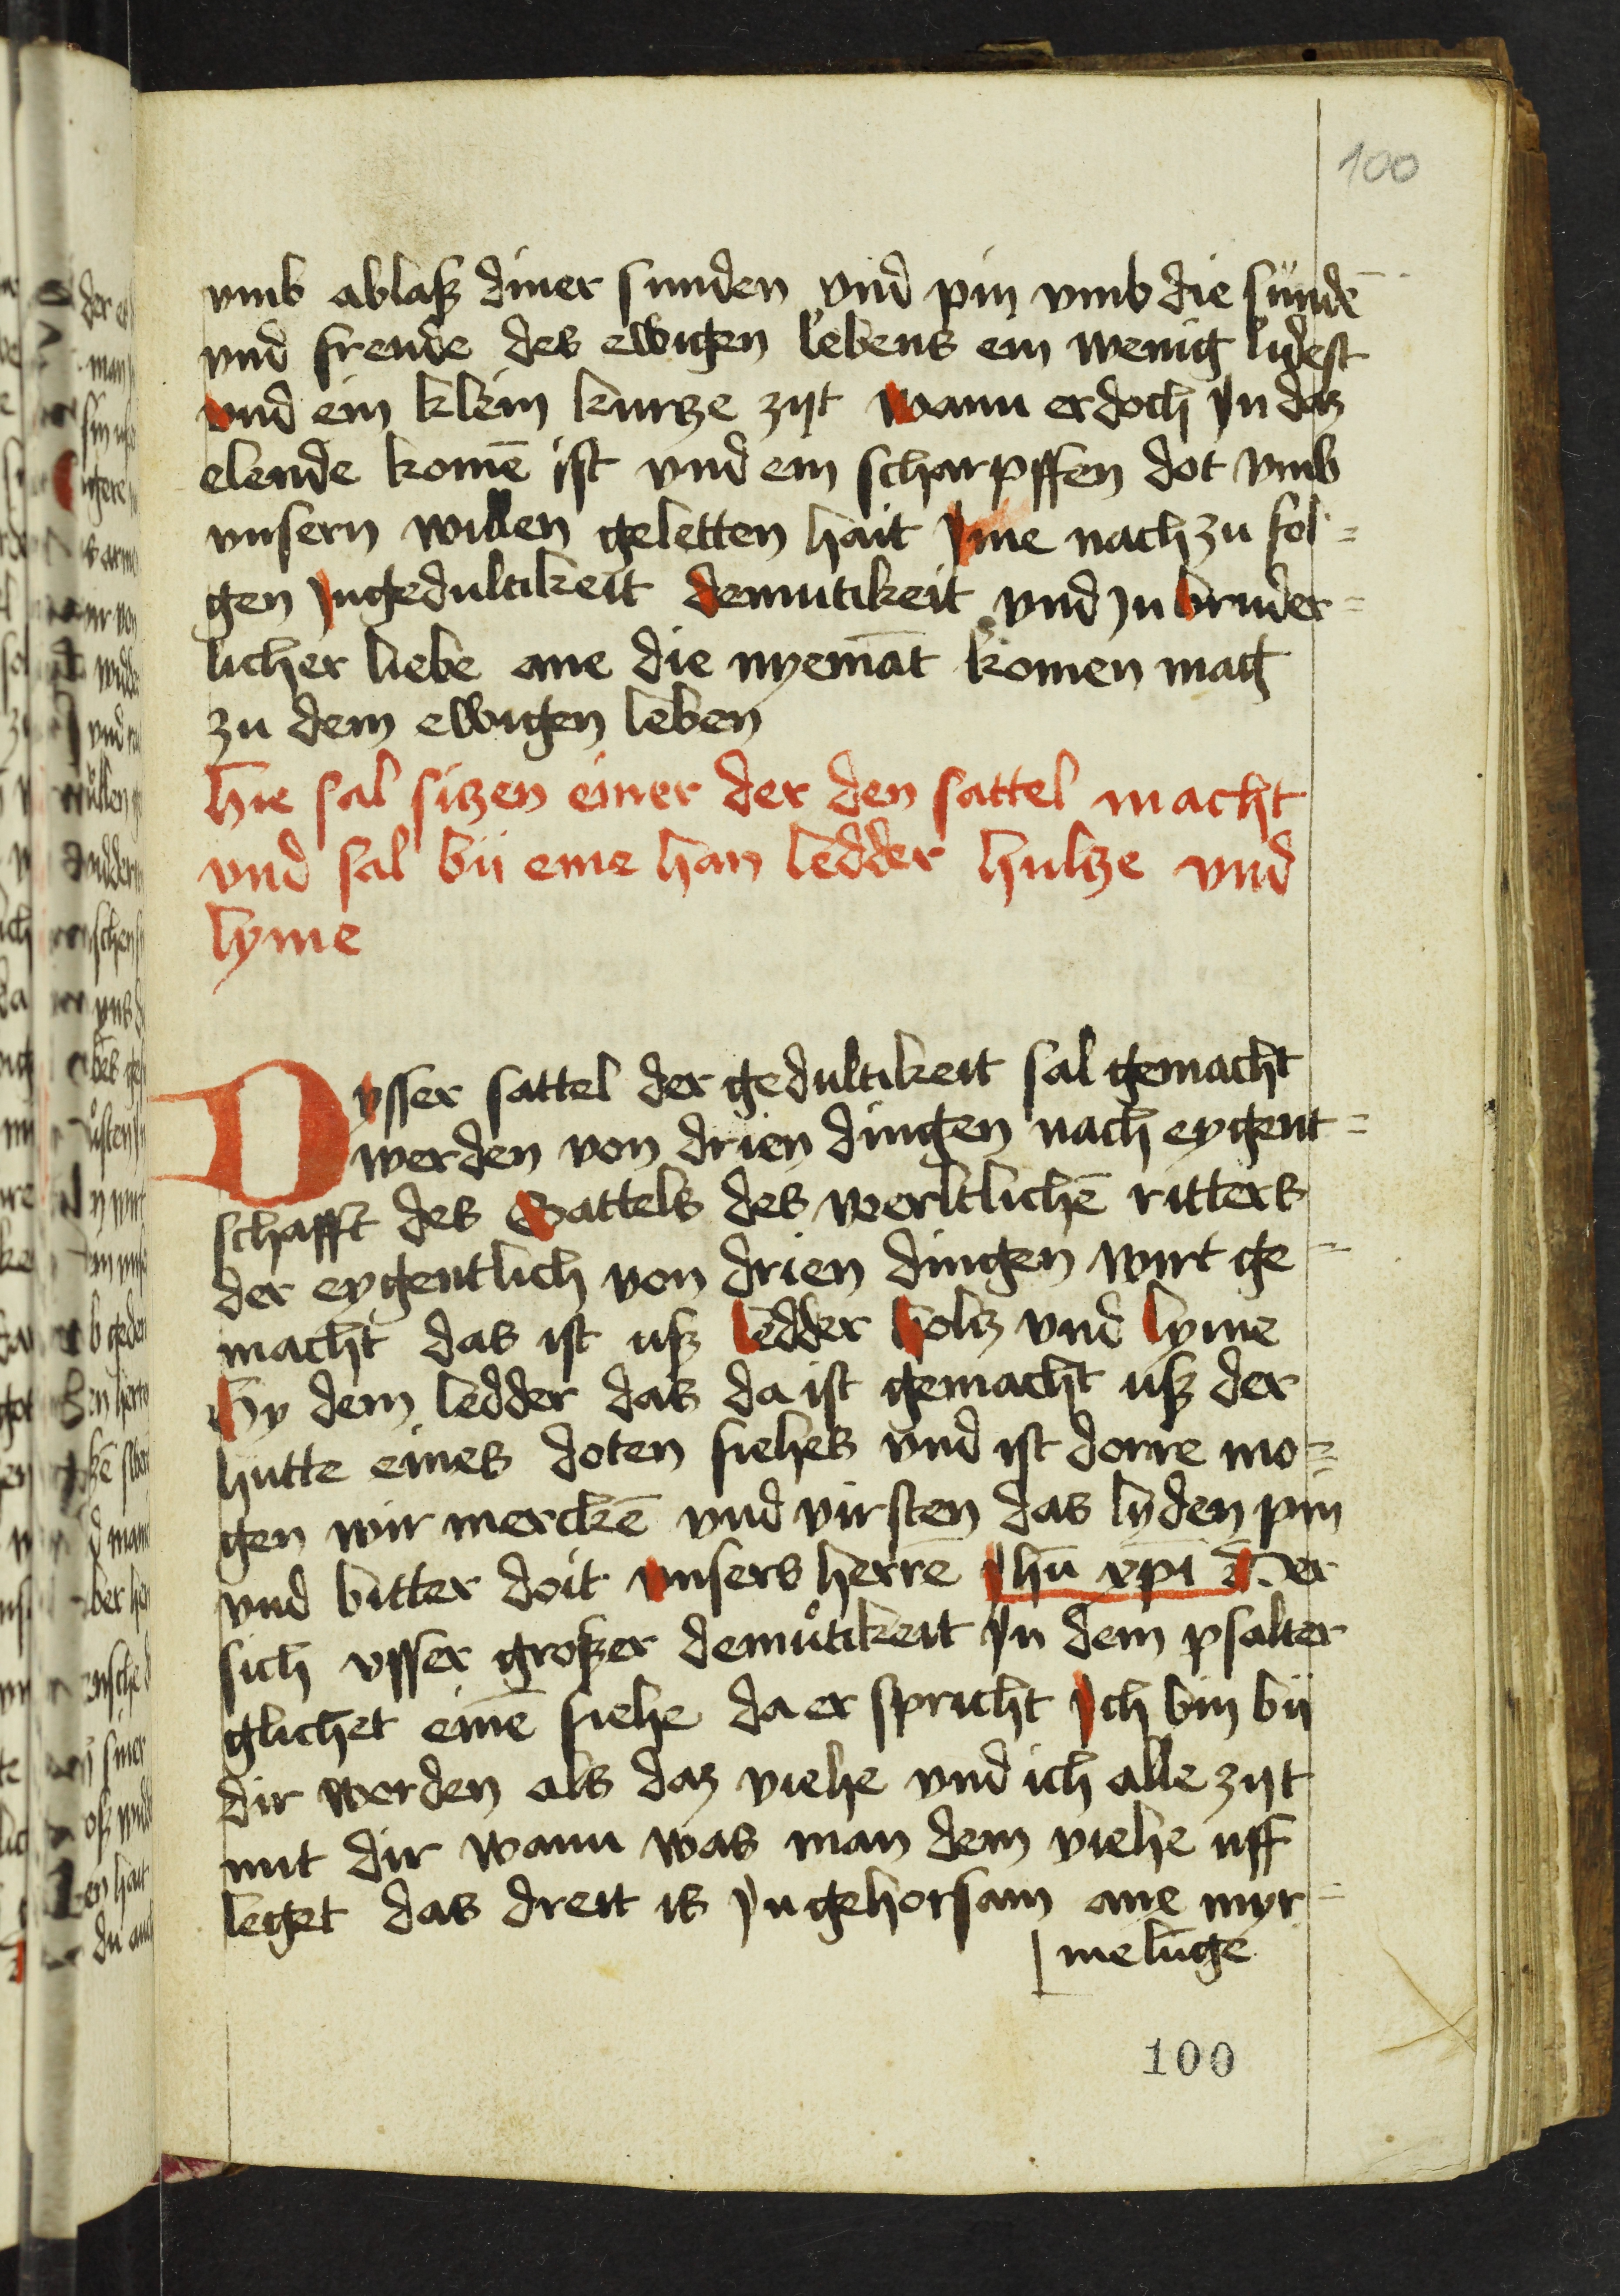 100
vmb ablasz diner sunden vnd pin vmb die sundē
vnd freude des ewigen lebens ein wenig lidest
vnd ein klein kurtze zijt wann er doch In daz
elende komē ist vnd ein scharpffen dot vmb
vnsern willen geletten hait Ime nach zu fol=
gen In gedultikeit demutikeit vnd In bruder=
licher liebe ane die nyemāt komen mag
zu dem ewigen leben
Hie sal sitzen einer der den sattel macht
vnd sal bij eme han ledder hultze vnd
lyme
Dysser sattel der gedultikeit sal gemacht
werden von drien dingen nach eygent=
schafft des Sattels des werltlichē ritters
der eygentlich von drien dingen wirt ge=
macht das ist usz ledder holtz vnd lyme
By dem ledder das da ist gemacht usz der
hutte eines doten fiehes vnd ist dorre mo=
gen wir merckē vnd virsten das lyden pin
vnd bitter doit vnsers herrē Ihū xpī Der
sich vsser groszer demůtikeit In dem psalter
glichet einē fiehe da er spricht Ich bin bij
dir worden als daz viehe vnd ich alle zijt
mit dir wann was man dem viehe uff
leget das dreit is In gehorsam ane myr=
melūge
100